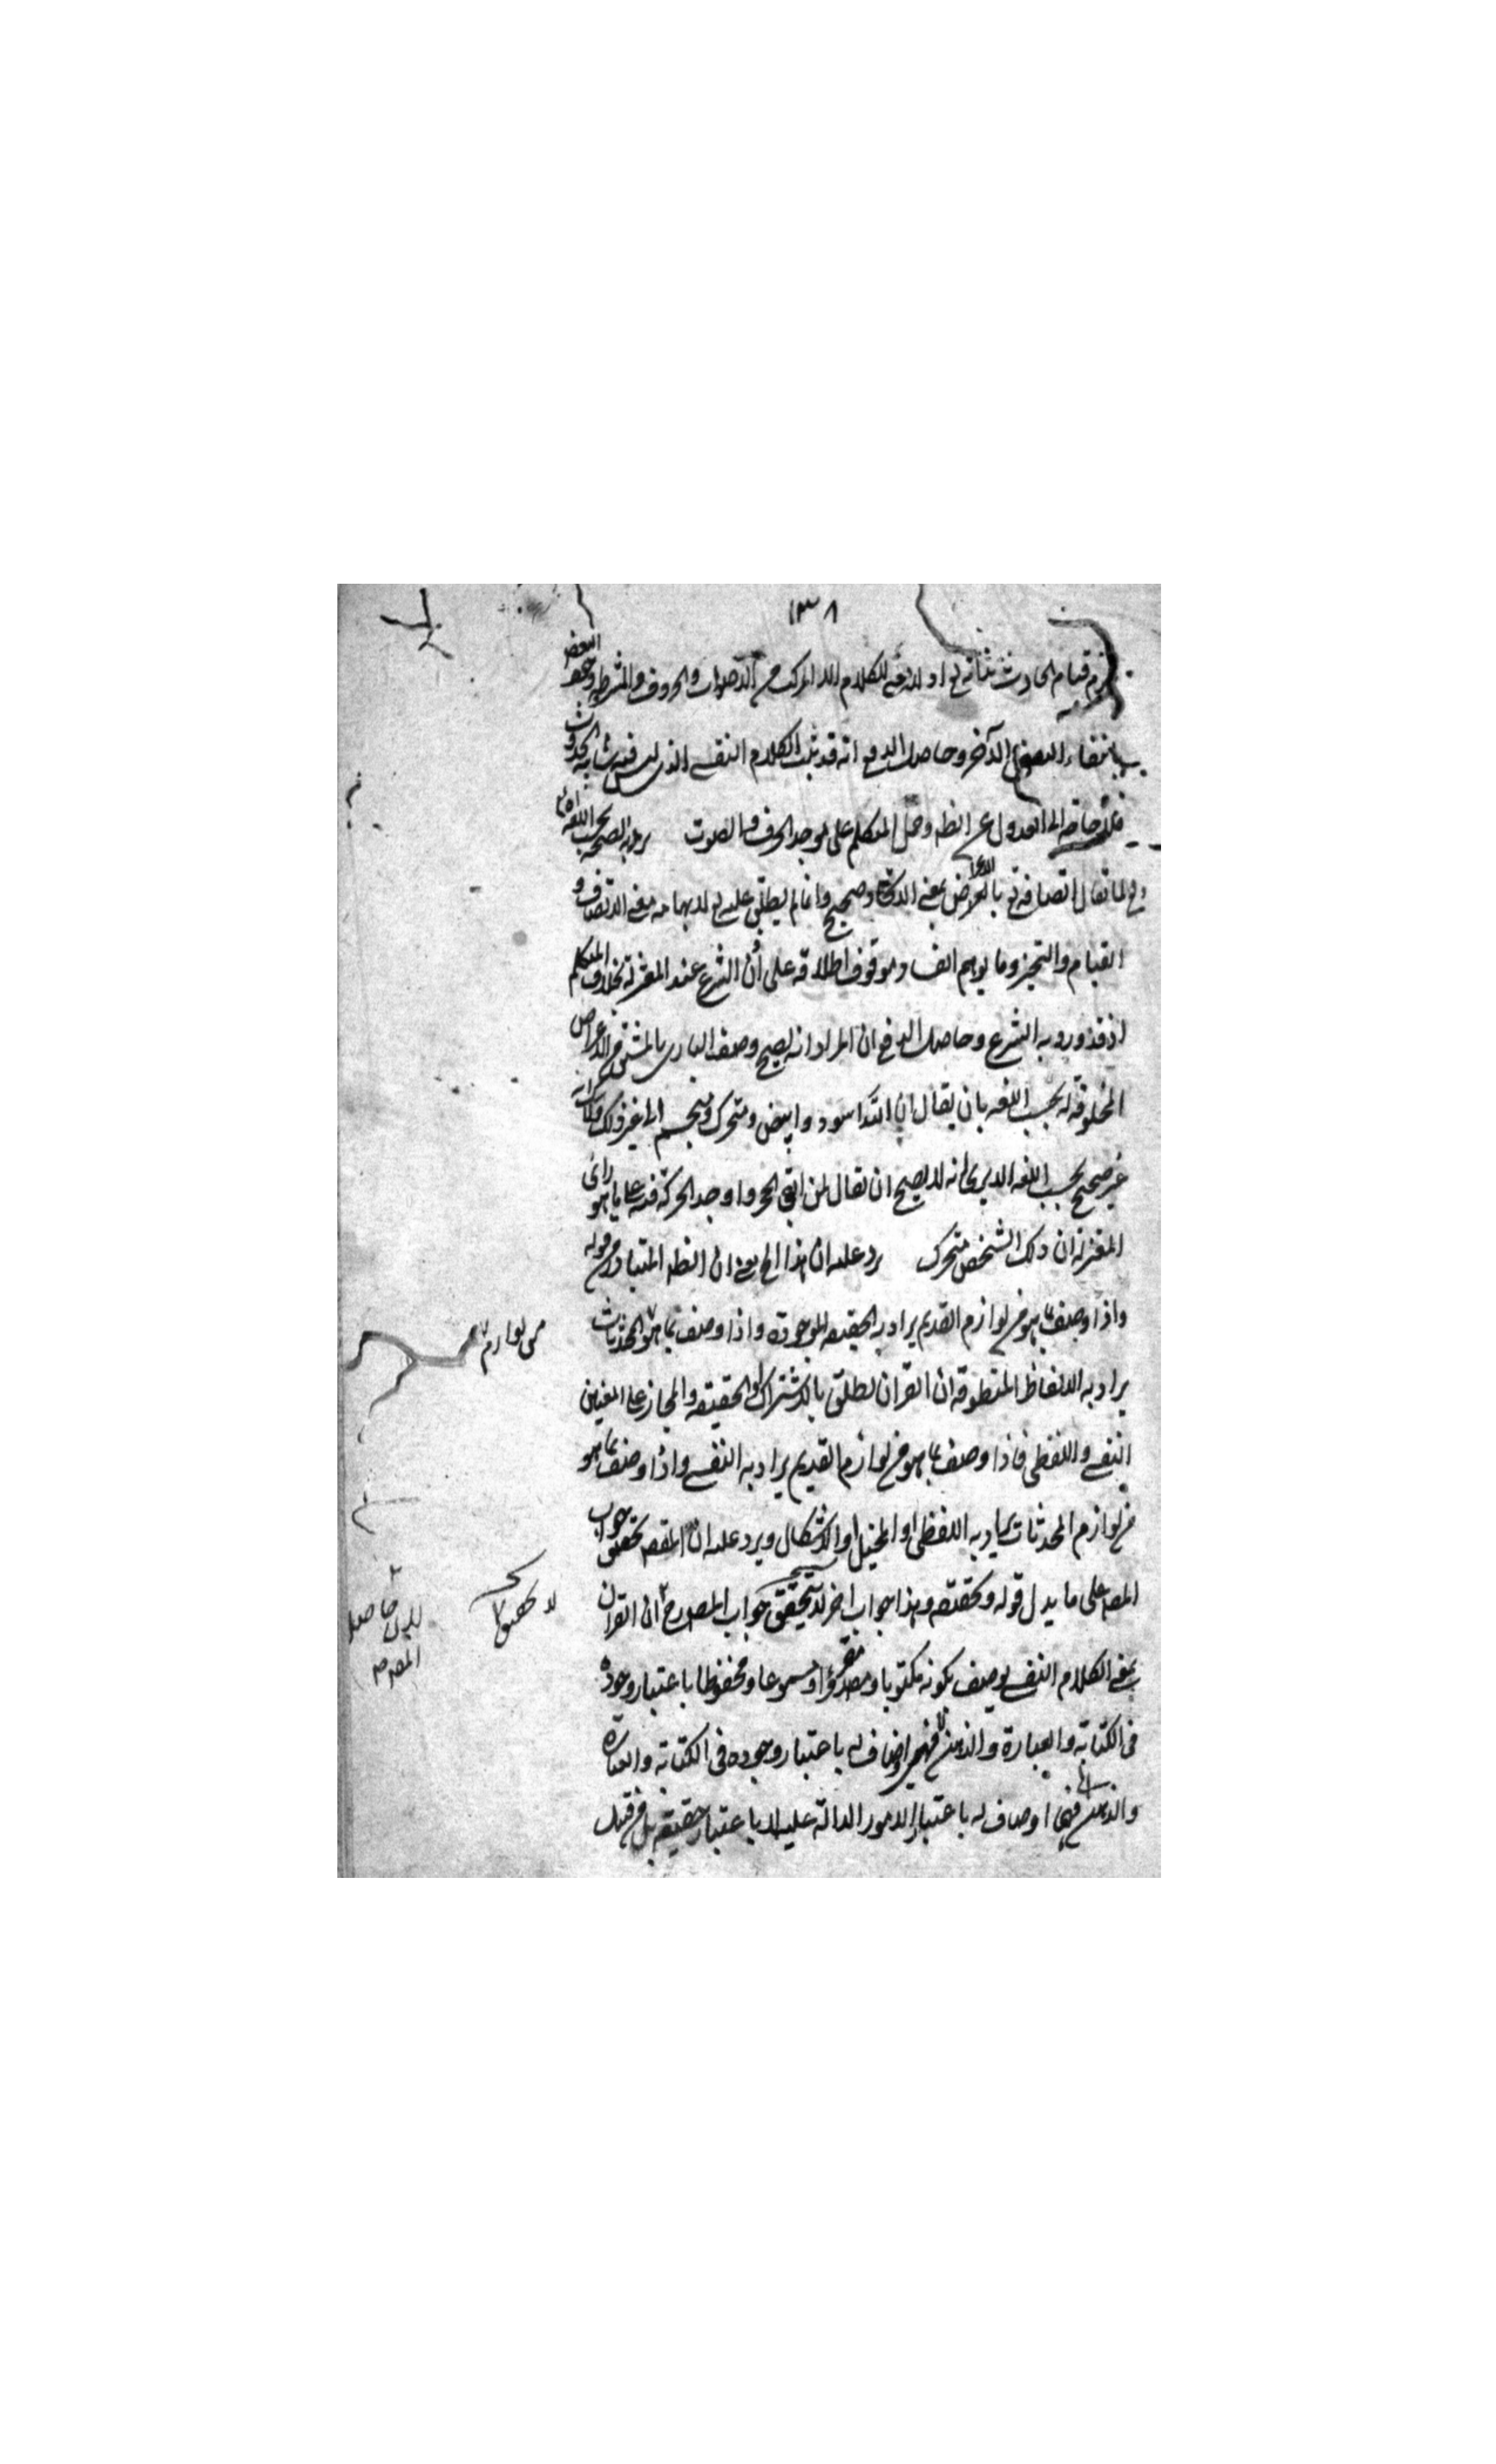 ١٣٨
قيام الحادث بذاته تع اذ لا معنى للكلام الا المركب من الاصوات والحروف والمشروط وجود البعض
بانقضاء البعض الآخر وحاصل الدفع انه قد ثبت الكلام النفسي الذي ليس فيه شائبة الحدوث
فلا حاجة الى العدول عن الظ وحمل المتكلم على موجد الحرف والصوت يرد به الصحة بحسب اللغة
لما يقال اتصافه تع بالاعراض بمعنى الايجاد صحيح وانما لم يطلق عليه تع لايهامه معنى الاتصاف و
القيام والتحيز وما يوهم الفساد موقوف اطلاقه على اذن الشرع عند المعتزلة بخلاف المتكلم
اذ قد ورد به الشرع وحاصل الدفع ان المراد انه يصح وصف الباري بالمشتق من الاعراض
المخلوقة له بحسب اللغة بان يقال ان الله اسود وابيض ومتحرك ومتجسم الى غير ذلك
غير صحيح بحسب اللغة الا يرى انه لا يصح ان يقال لمن القى الحجر واوجد الحركة فيه على ما هو رأي
المعتزلة ان ذلك الشخص متحرك يرد عليه ان هذا الخ يعني ان الظ المتبادر من قوله
واذا وصف بما هو من لوازم القديم يراد به الحقيقة الموجودة واذا وصف بما هو المحدثات
من لوازم
يراد به الالفاظ المنطوقة ان القران يطلق بالاشتراك او الحقيقة والمجاز على المعنيين
النفسي واللفظي فاذا وصف بما هو من لوازم القديم يراد به النفسي واذا وصف بما هو
من لوازم المحدثات يراد به اللفظي او المخيل او الاشكال ويرد عليه ان المقصود تحقيق جواب
المص على ما يدل قوله وتحقيقه وهذا جواب اخر لا تحقيق جواب المص ان القران
لا تحقيق
لان حاصل
المص
بمعنى الكلام النفسي يوصف بكونه مكتوبا ومقروا ومسموعا ومحفوظا باعتبار وجوده
في الكتابة والعبارة والذهن فهي اوصاف له باعتبار وجوده في الكتابة والعبارة
والذهن فهي اوصاف له باعتبار الامور الدالة عليه لا باعتبار حقيقته بل من قبيل